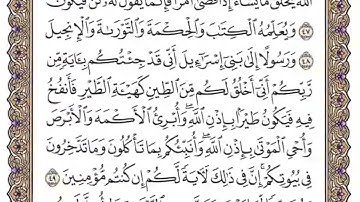 ٱللَّهُ يَخْلُقُ مَا يَشَآءُ إِذَا قَضَىٰٓ أَمْرًا فَإِنَّمَا يَقُولُ لَهُۥ كُن فَيَكُونُ
٤٧ وَيُعَلِّمُهُ ٱلْكِتَٰبَ وَٱلْحِكْمَةَ وَٱلتَّوْرَىٰةَ وَٱلْإِنجِيلَ
٤٨ وَرَسُولًا إِلَىٰ بَنِىٓ إِسْرَٰٓءِيلَ أَنِّى قَدْ جِئْتُكُم بِـَٔايَةٍ مِّن
رَّبِّكُمْ أَنِّىٓ أَخْلُقُ لَكُم مِّنَ ٱلطِّينِ كَهَيْـَٔةِ ٱلطَّيْرِ فَأَنفُخُ
فِيهِ فَيَكُونُ طَيْرًۢا بِإِذْنِ ٱللَّهِ وَأُبْرِئُ ٱلْأَكْمَهَ وَٱلْأَبْرَصَ
وَأُحْىِ ٱلْمَوْتَىٰ بِإِذْنِ ٱللَّهِ وَأُنَبِّئُكُم بِمَا تَأْكُلُونَ وَمَا تَدَّخِرُونَ
فِى بُيُوتِكُمْ إِنَّ فِى ذَٰلِكَ لَـَٔايَةً لَّكُمْ إِن كُنتُم مُّؤْمِنِينَ ٤٩